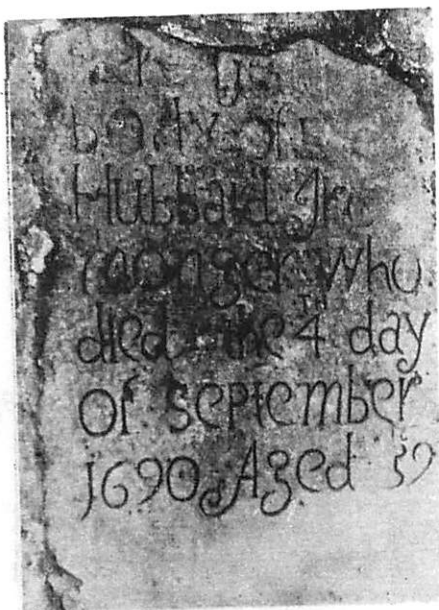 body of
Hubbard Iro
monger who
died the 4 day
of september
1690 Aged